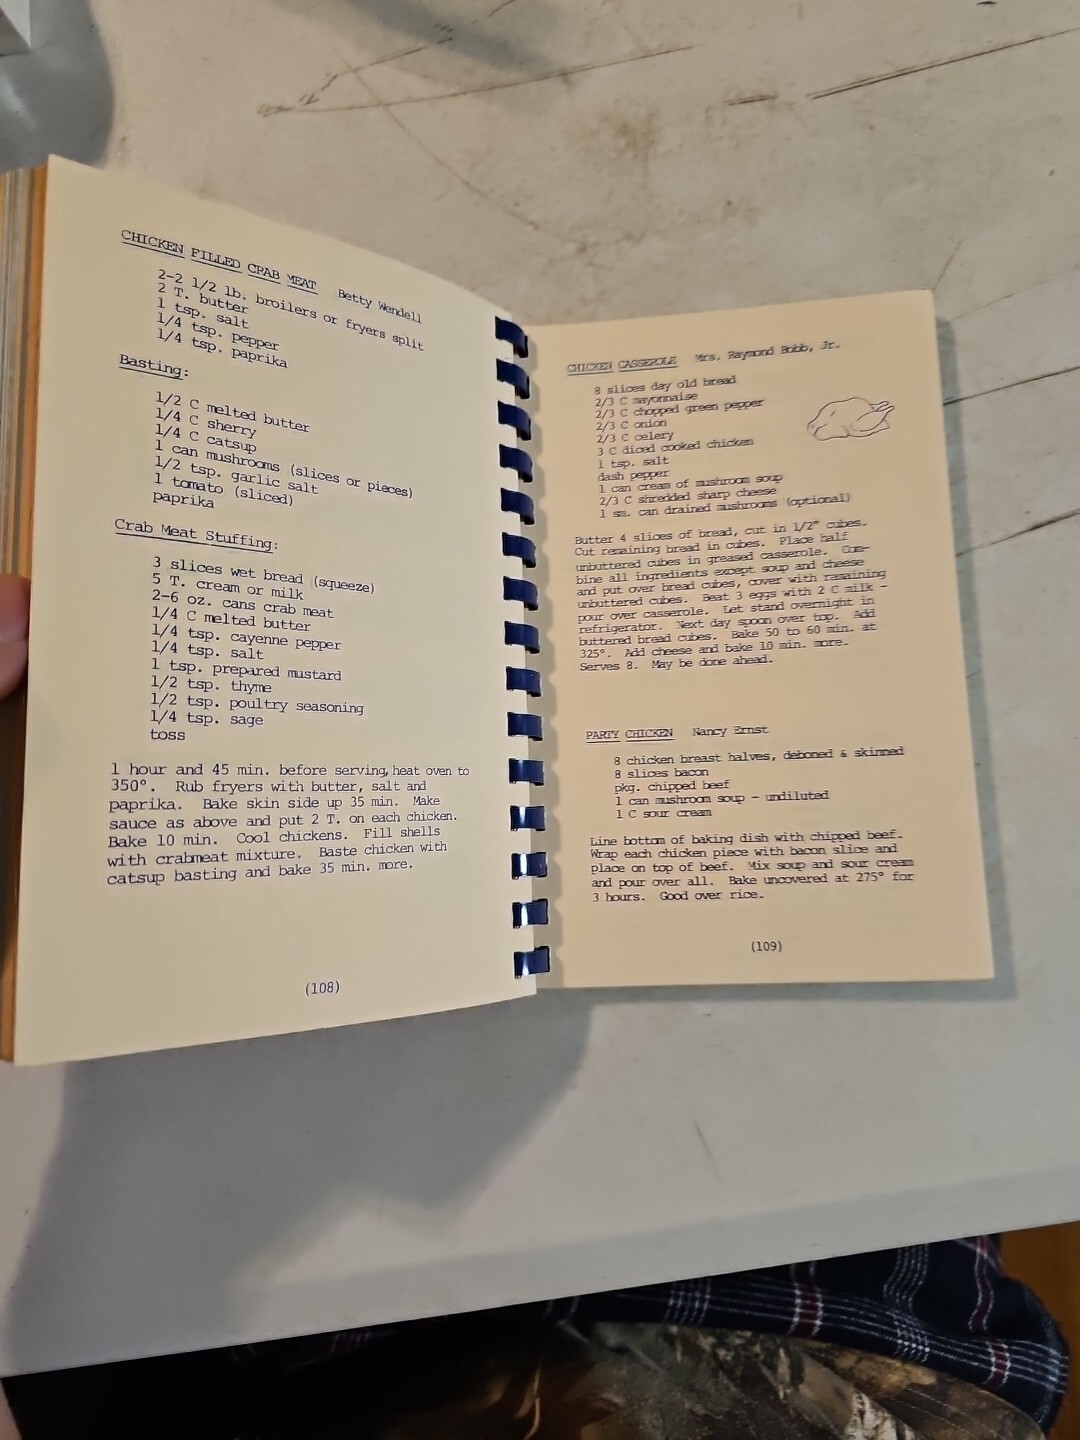 CHICKEN FILLED CRAB MEAT Betty Wendell
2-2 1/2 lb. broilers or fryers split
2 T. butter
1 tsp. salt
1/4 tsp. pepper
1/4 tsp. paprika
Basting:
1/2 C melted butter
1/4 C sherry
1/4 C catsup
1 can mushrooms (slices or pieces)
1/2 tsp. garlic salt
1 tomato (sliced)
paprika
Crab Meat Stuffing:
3 slices wet bread (squeeze)
5 T. cream or milk
2-6 oz. cans crab meat
1/4 C melted butter
1/4 tsp. cayenne pepper
1/4 tsp. salt
1 tsp. prepared mustard
1/2 tsp. thyme
1/2 tsp. poultry seasoning
1/4 tsp. sage
toss
1 hour and 45 min. before serving, heat oven to
350°. Rub fryers with butter, salt and
paprika. Bake skin side up 35 min. Make
sauce as above and put 2 T. on each chicken.
Bake 10 min. Cool chickens. Fill shells
with crabmeat mixture. Baste chicken with
catsup basting and bake 35 min. more.
(108)
CHICKEN CASSEROLE Mrs. Raymond Bobb, Jr.
8 slices day old bread
2/3 C mayonnaise
2/3 C chopped green pepper
2/3 C onion
2/3 C celery
3 C diced cooked chicken
1 tsp. salt
dash pepper
1 can cream of mushroom soup
2/3 C shredded sharp cheese
1 sm. can drained mushrooms (optional)
Butter 4 slices of bread, cut in 1/2" cubes.
Cut remaining bread in cubes. Place half
unbuttered cubes in greased casserole. Com-
bine all ingredients except soup and cheese
and put over bread cubes, cover with remaining
unbuttered cubes. Beat 3 eggs with 2 C milk -
pour over casserole. Let stand overnight in
refrigerator. Next day spoon over top. Add
buttered bread cubes. Bake 50 to 60 min. at
325°. Add cheese and bake 10 min. more.
Serves 8. May be done ahead.
PARTY CHICKEN Nancy Ernst
8 chicken breast halves, deboned & skinned
8 slices bacon
pkg. chipped beef
1 can mushroom soup - undiluted
1 C sour cream
Line bottom of baking dish with chipped beef.
Wrap each chicken piece with bacon slice and
place on top of beef. Mix soup and sour cream
and pour over all. Bake uncovered at 275° for
3 hours. Good over rice.
(109)